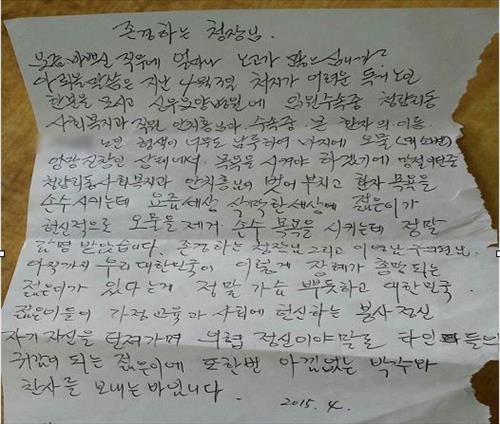 존경하는 청장님.
요즘 바쁘신 직무에 얼마나 노고가 많으십니까?
지난 4월 처지가 어려운 독거 노인
한분을 모시고 요양병원에 입원수속중 청량리동
사회복지과 직원 안치홍님과 수속중 본 환자의 이동
노인 행색이 너무도 남루하여 하지에 오물
상태에서 목욕을 시켜야 하겠기에
청량리동 사회복지과 안치홍님이 벗어 부치고 환자 목욕을
손수 시키는데 요즘세상 삭막한 세상에 젊은이가
헌신적으로 오물을 제거 손수 목욕을 시키는데 정말
감명 받았습니다. 존경하는 청장님 그리고
아직까지 우리 대한민국이 이렇게 장래가 촉망되는
젊은이가 있다는게 정말 가슴 뿌듯하고 대한민국
젊은이들이 가정교육과 사회에 헌신하는 봉사정신
자기 자신을 던져가며 정신이야말로 타인들의
귀감이 되는 젊은이에 또한번 아낌없는 박수와
찬사를 보내는 바입니다.
2015. 4.